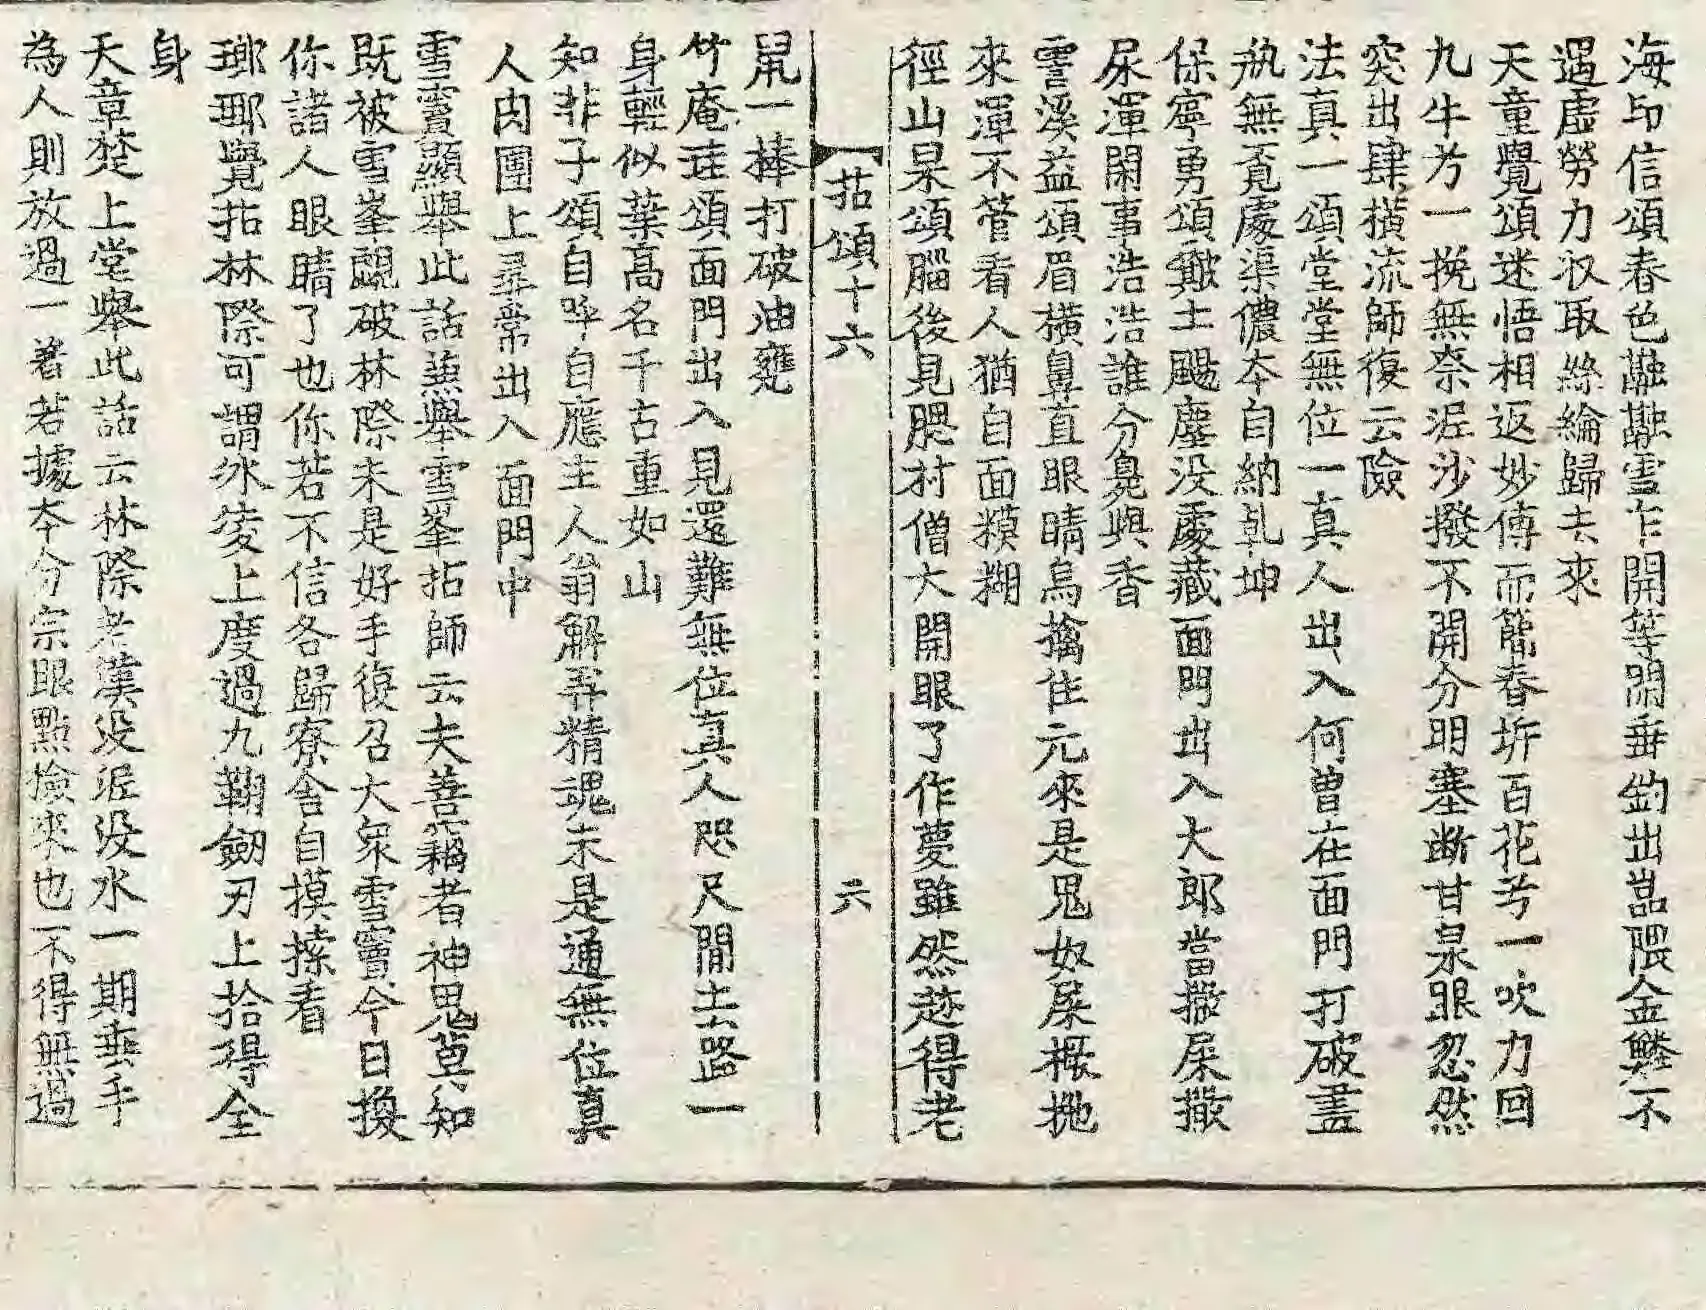 海印信頌春色融融雪乍開等閑垂釣出嵓隈金鱗不
遇虛勞力収取絲綸歸去來
天童覺頌迷悟相返妙傳而簡春坼百花兮一吹力回
九牛兮一挽無奈泥沙撥不開分明塞断甘泉眼忽然
突出肆橫流師復云險
法真一頌堂堂無位一真人出入何曽在面門打破畫
缾無覔處渠儂夲自納乹坤
保寧勇頌竸土颺塵没處藏面門出入大郎當撒屎撒
尿渾閑事浩浩誰分臭與香
霅溪益頌眉橫鼻直眼睛烏擒住元來是鬼奴屎橛拋
來渾不管看人猶自面糢糊
徑山杲頌腦後見腮村僧大開眼了作夢雖然趂得老
拈頌十六
六
鼠一棒打破油甕
竹庵珪頌面門出入見還難無位真人咫尺間去路一
身輕似葉高名千古重如山
知非子頌自呼自應主人翁解弄精魂未是通無位真
人肉團上尋常出入面門中
雪竇顯舉此話兼舉雪峯拈師云夫善竊者神鬼莫知
既被雪峯覷破林際未是好手復召大衆雪竇今日換
你諸人眼睛了也你若不信各歸寮舍自摸㨮看
瑯琊覺拈林際可謂氷凌上度過九鞠劒刃上拾得全
身
天章楚上堂舉此話云林際老漢没泥没水一期垂手
為人則放過一著若據夲分宗眼點檢來也不得無過